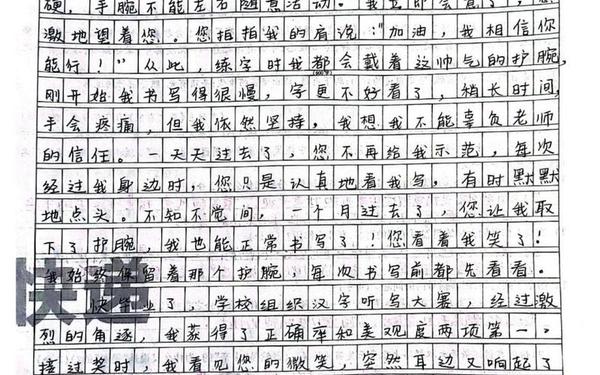 硬，手腕不能左右随意活动。我立即会意了，感
激地望着您。您拍拍我的肩说："加油，我相信你
能行！"从此，练字时我都会戴着这帅气的护腕，
刚开始我书写得很慢，字更不好看了，稍长时间，
手会疼痛，但我依然坚持，我想我不能辜负老师
的信任。一天天过去了，您不再给我示范，每次
经过我身边时，您只是认真地看我写，有时默默
地点头。不知不觉间，一个月过去了，您让我取
下了护腕，我也能正常书写了！您看着我笑了！
我始终保留着那个护腕，每次书写前都先看看。
快毕业了，学校组织汉字听写大赛，经过激
烈的角逐，我获得了正确率和美观度两项第一，
接过奖时，我看见您的微笑，突然耳边又响起了
快递